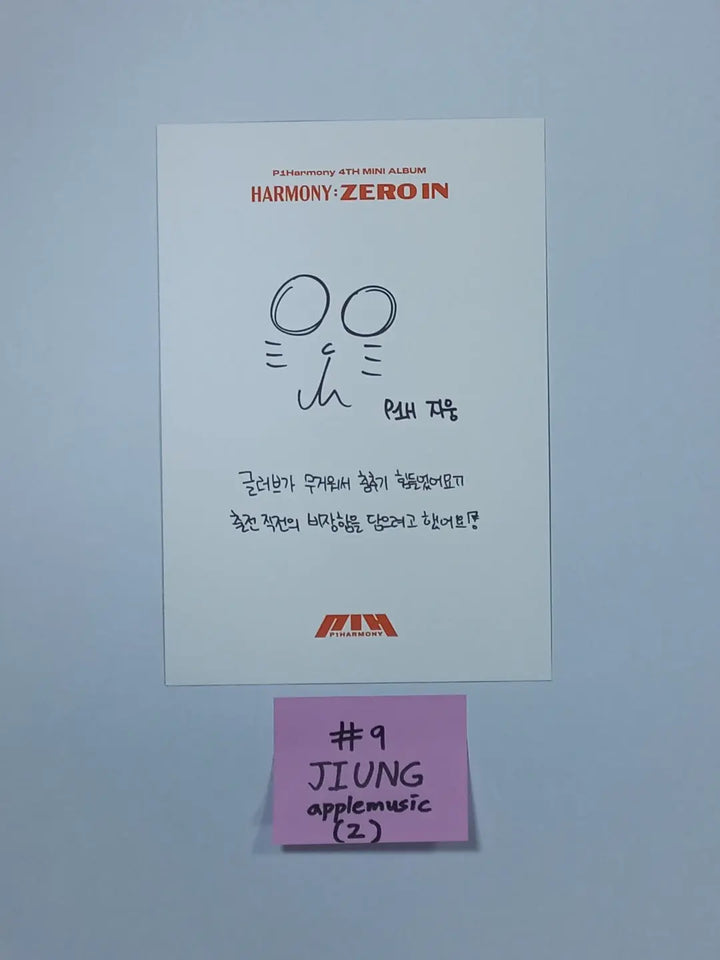 P1Harmony 4TH MINI ALBUM
HARMONY: ZERO IN
P1H 지웅
글러브가 무거워서 춤추기 힘들었어요ㄲ
출전 직전의 비장함을 담으려고 했어요!
P1H
P1HARMONY
#9
JIUNG
applemusic
(2)